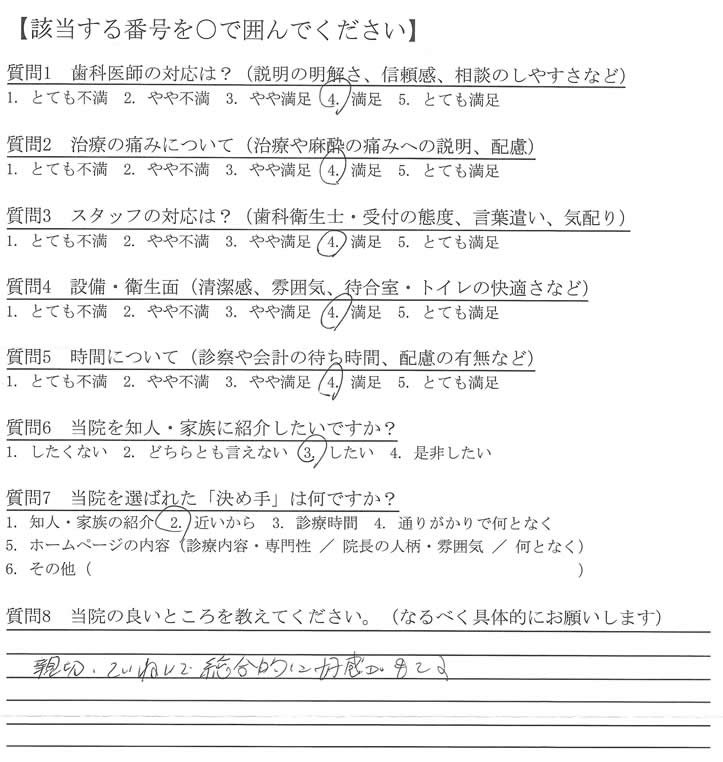 【該当する番号を○で囲んでください】
質問1　歯科医師の対応は？（説明の明解さ、信頼感、相談のしやすさなど）
1. とても不満  2. やや不満  3. やや満足  4. 満足  5. とても満足
質問2　治療の痛みについて（治療や麻酔の痛みへの説明、配慮）
1. とても不満  2. やや不満  3. やや満足  4. 満足  5. とても満足
質問3　スタッフの対応は？（歯科衛生士・受付の態度、言葉遣い、気配り）
1. とても不満  2. やや不満  3. やや満足  4. 満足  5. とても満足
質問4　設備・衛生面（清潔感、雰囲気、待合室・トイレの快適さなど）
1. とても不満  2. やや不満  3. やや満足  4. 満足  5. とても満足
質問5　時間について（診察や会計の待ち時間、配慮の有無など）
1. とても不満  2. やや不満  3. やや満足  4. 満足  5. とても満足
質問6　当院を知人・家族に紹介したいですか？
1. したくない  2. どちらとも言えない  3. したい  4. 是非したい
質問7　当院を選ばれた「決め手」は何ですか？
1. 知人・家族の紹介  2. 近いから  3. 診療時間  4. 通りがかりで何となく
5. ホームページの内容（診療内容・専門性 ／ 院長の人柄・雰囲気 ／ 何となく）
6. その他（　　　）
質問8　当院の良いところを教えてください。（なるべく具体的にお願いします）
親切、ていねいで 総合的に好感がもてる